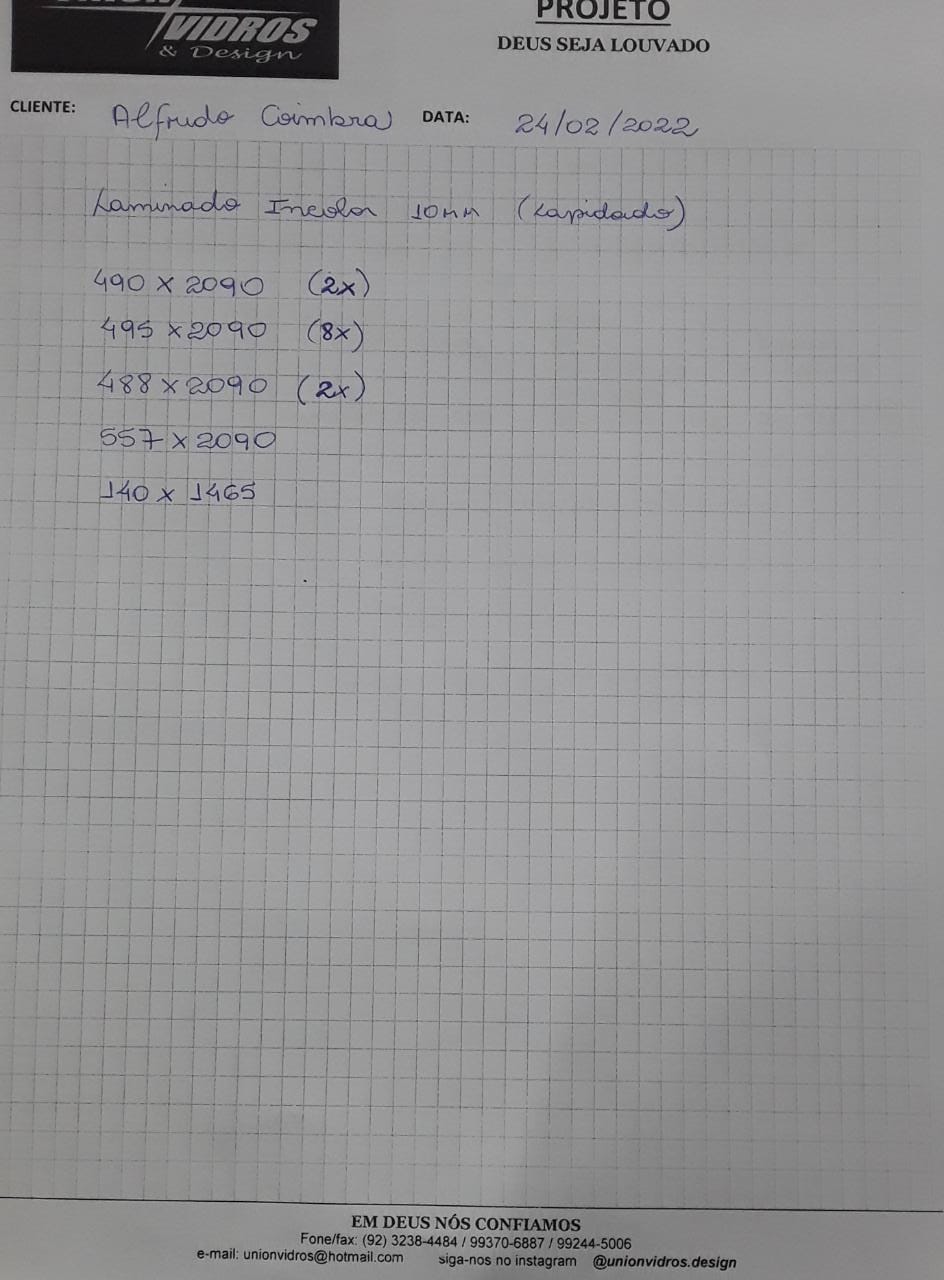 VIDROS
& Design
PROJETO
DEUS SEJA LOUVADO
CLIENTE: Alfrudo Coimbra DATA: 24/02/2022
Laminado Incolor 10mm (Lapidado)
490 x 2090 (2x)
495 x 2090 (8x)
488 x 2090 (2x)
557 x 2090
140 x 1465
EM DEUS NÓS CONFIAMOS
Fone/fax: (92) 3238-4484 / 99370-6887 / 99244-5006
e-mail: unionvidros@hotmail.com siga-nos no instagram @unionvidros.design